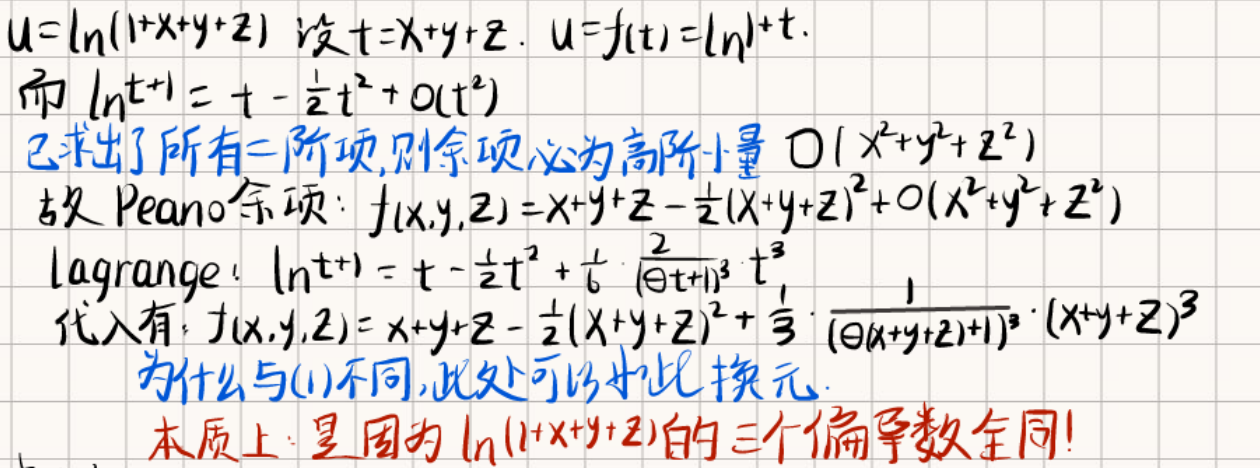 u=ln(1+x+y+z) 设t=x+y+z. u=f(t)=ln1+t.
而 ln t+1 = t - 1/2 t² + o(t²)
已求出了所有二阶项,则余项必为高阶小量 O(x²+y²+z²)
故 Peano余项: f(x,y,z)=x+y+z-1/2(x+y+z)²+o(x²+y²+z²)
lagrange: ln t+1 = t - 1/2 t² + 1/6 · 2/(θt+1)³ · t³
代入有: f(x,y,z)= x+y+z - 1/2(x+y+z)² + 1/3 · 1/(θ(x+y+z)+1)³ · (x+y+z)³
为什么与(1)不同,此处可以如此换元.
本质上:是因为 ln(1+x+y+z)的三个偏导数全同!